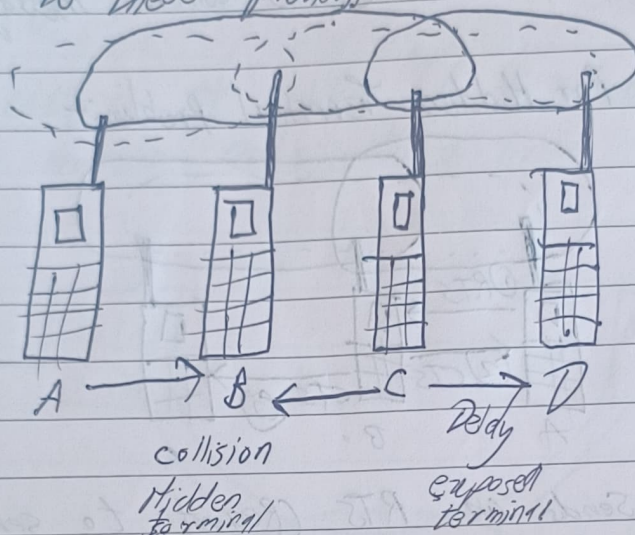 A B C D
Delay
collision
Hidden
terminal
exposed
terminal